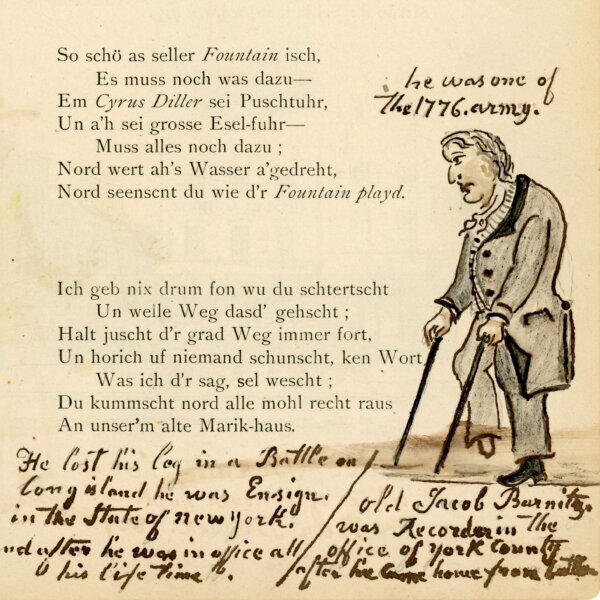 So schö as seller Fountain isch,
Es muss noch was dazu—
Em Cyrus Diller sei Puschtuhr,
Un a'h sei grosse Esel-fuhr—
Muss alles noch dazu ;
Nord wert ah's Wasser a'gedreht,
Nord seenscht du wie d'r Fountain playd.
he was one of
the 1776. army.
Ich geb nix drum fon wu du schtertscht
Un welle Weg dasd' gehscht ;
Halt juscht d'r grad Weg immer fort,
Un horich uf niemand schunscht, ken Wort
Was ich d'r sag, sel wescht ;
Du kummscht nord alle mohl recht raus
An unser'm alte Marik-haus.
He lost his leg in a Battle on
Long island he was Ensign.
in the State of new york.
nd after he was in office all
his life time.
old Jacob Barnitz.
was Recorder in the
office of york County
after he came home from battle